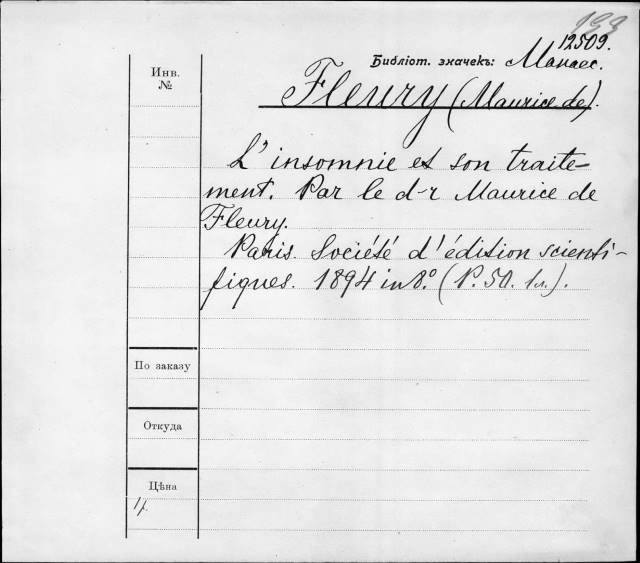 193
12509.
Библіот. значекъ: Манас.
Инв. №
Fleury (Maurice de).
L'insomnie et son traite-
ment. Par le d-r Maurice de
Fleury.
Paris. Société d'édition scienti-
fiques. 1894 in 8.° (P. 50. 1л.).
По заказу
Откуда
Цѣна